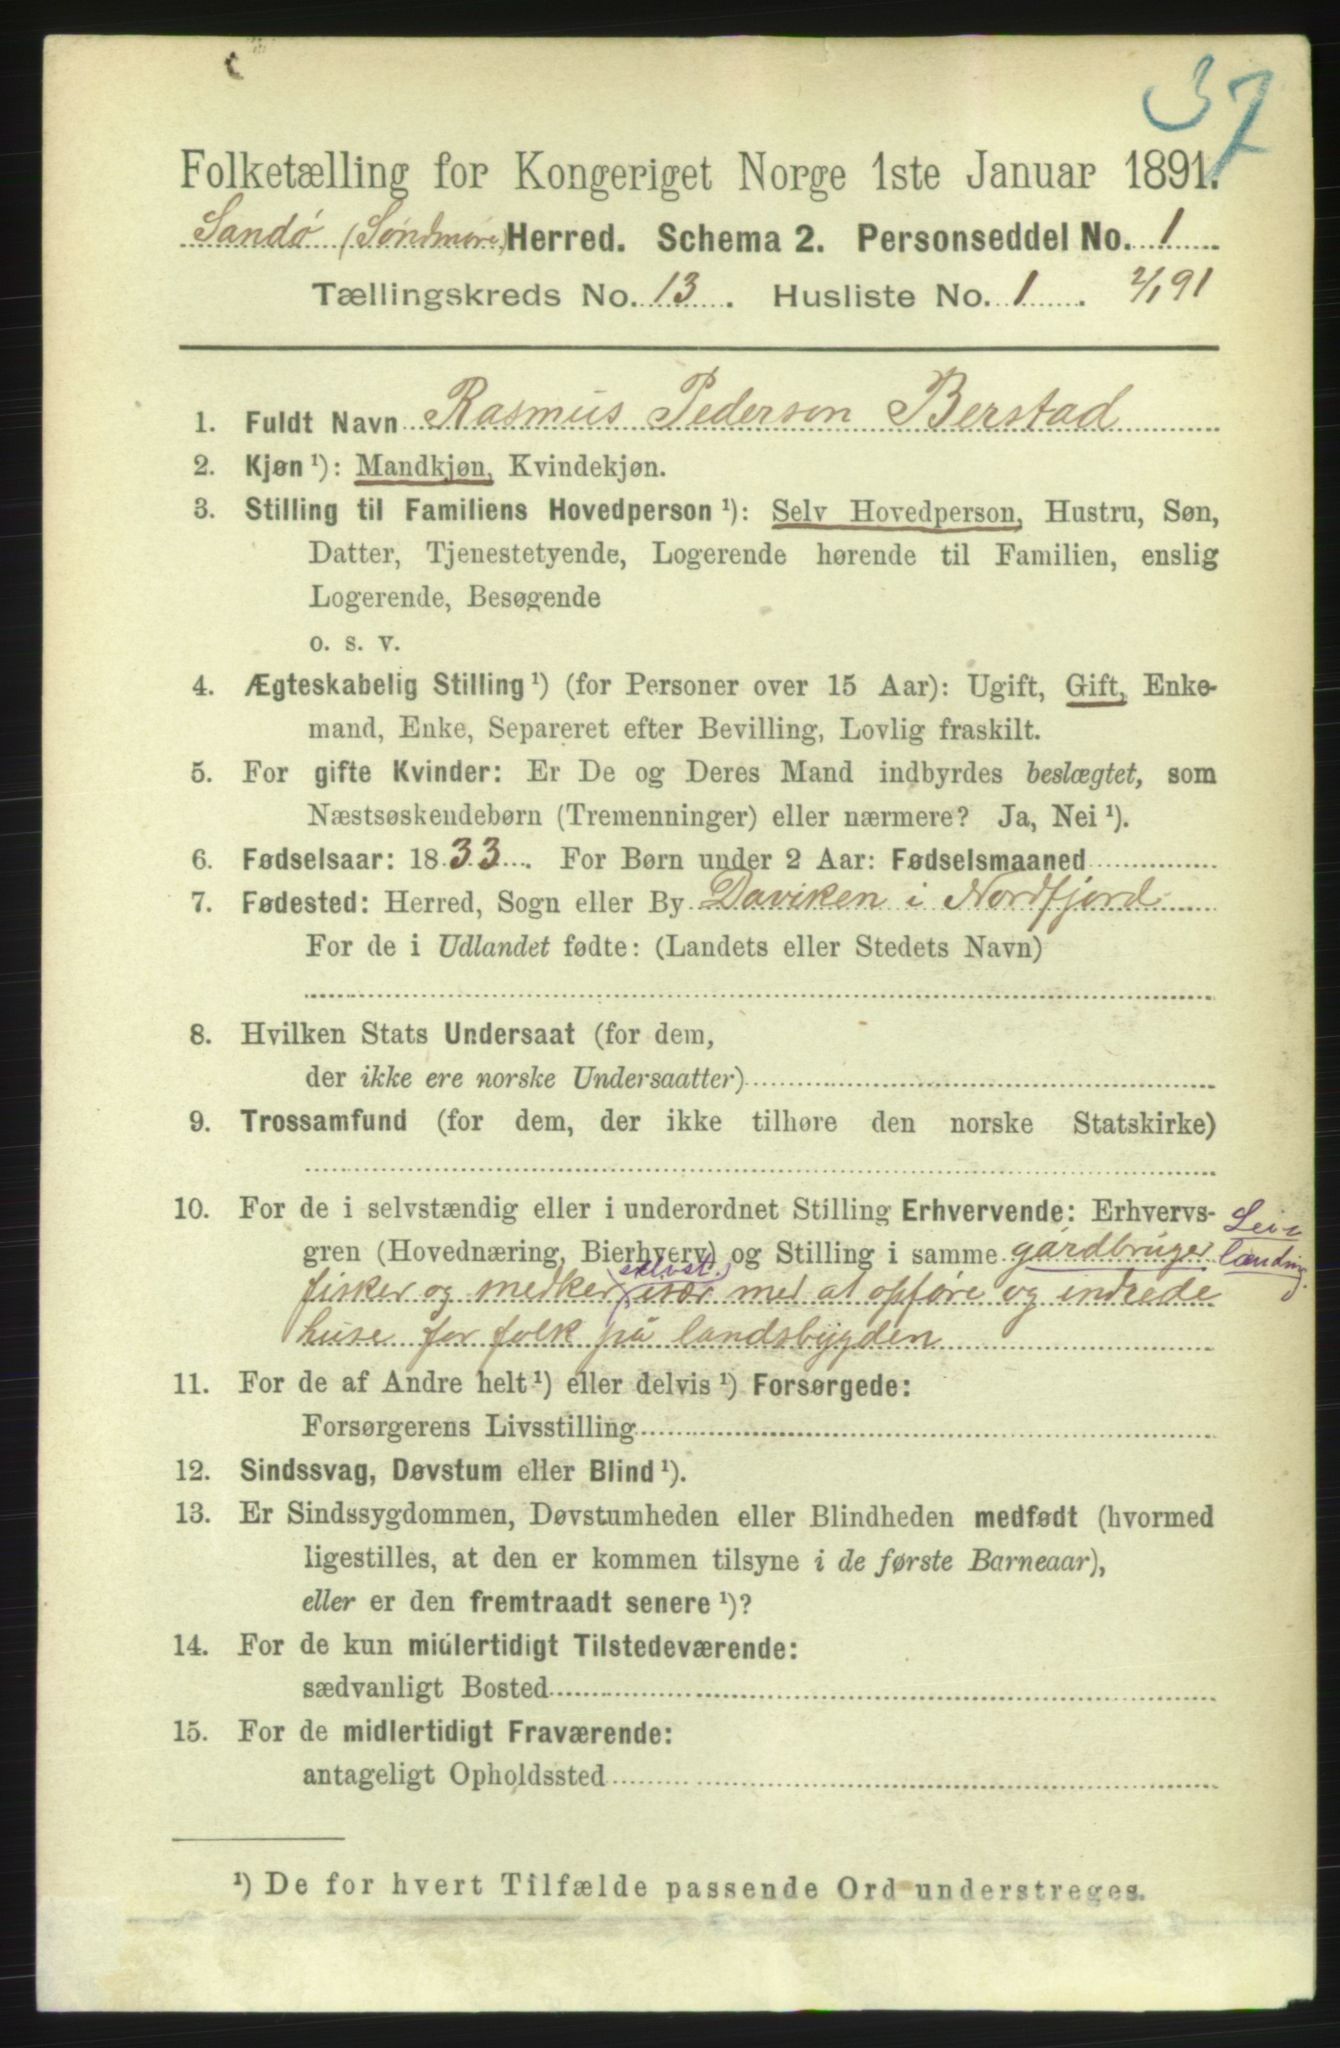 37
Folketælling for Kongeriget Norge 1ste Januar 1891.
Sandø (Søndmøre) Herred. Schema 2. Personseddel No. 1
Tællingskreds No. 13. Husliste No. 1. 2/1 91
1. Fuldt Navn Rasmus Pederson Berstad
2. Kjøn ¹): Mandkjøn, Kvindekjøn.
3. Stilling til Familiens Hovedperson ¹): Selv Hovedperson, Hustru, Søn,
Datter, Tjenestetyende, Logerende hørende til Familien, enslig
Logerende, Besøgende
o. s. v.
4. Ægteskabelig Stilling ¹) (for Personer over 15 Aar): Ugift, Gift, Enke-
mand, Enke, Separeret efter Bevilling, Lovlig fraskilt.
5. For gifte Kvinder: Er De og Deres Mand indbyrdes beslægtet, som
Næstsøskendebørn (Tremenninger) eller nærmere? Ja, Nei ¹).
6. Fødselsaar: 1833. For Børn under 2 Aar: Fødselsmaaned
7. Fødested: Herred, Sogn eller By Daviken i Nordfjord
For de i Udlandet fødte: (Landets eller Stedets Navn)
8. Hvilken Stats Undersaat (for dem,
der ikke ere norske Undersaatter)
9. Trossamfund (for dem, der ikke tilhøre den norske Statskirke)
10. For de i selvstændig eller i underordnet Stilling Erhvervende: Erhvervs-
Lei-
gren (Hovednæring, Bierhverv) og Stilling i samme gårdbruger lænding
selvst.
fisker og snedker, især med at opføre og indrede
huse for folk på landsbygden
11. For de af Andre helt ¹) eller delvis ¹) Forsørgede:
Forsørgerens Livsstilling
12. Sindssvag, Døvstum eller Blind ¹).
13. Er Sindssygdommen, Døvstumheden eller Blindheden medfødt (hvormed
ligestilles, at den er kommen tilsyne i de første Barneaar),
eller er den fremtraadt senere ¹)?
14. For de kun midlertidigt Tilstedeværende:
sædvanligt Bosted
15. For de midlertidigt Fraværende:
antageligt Opholdssted
¹) De for hvert Tilfælde passende Ord understreges.